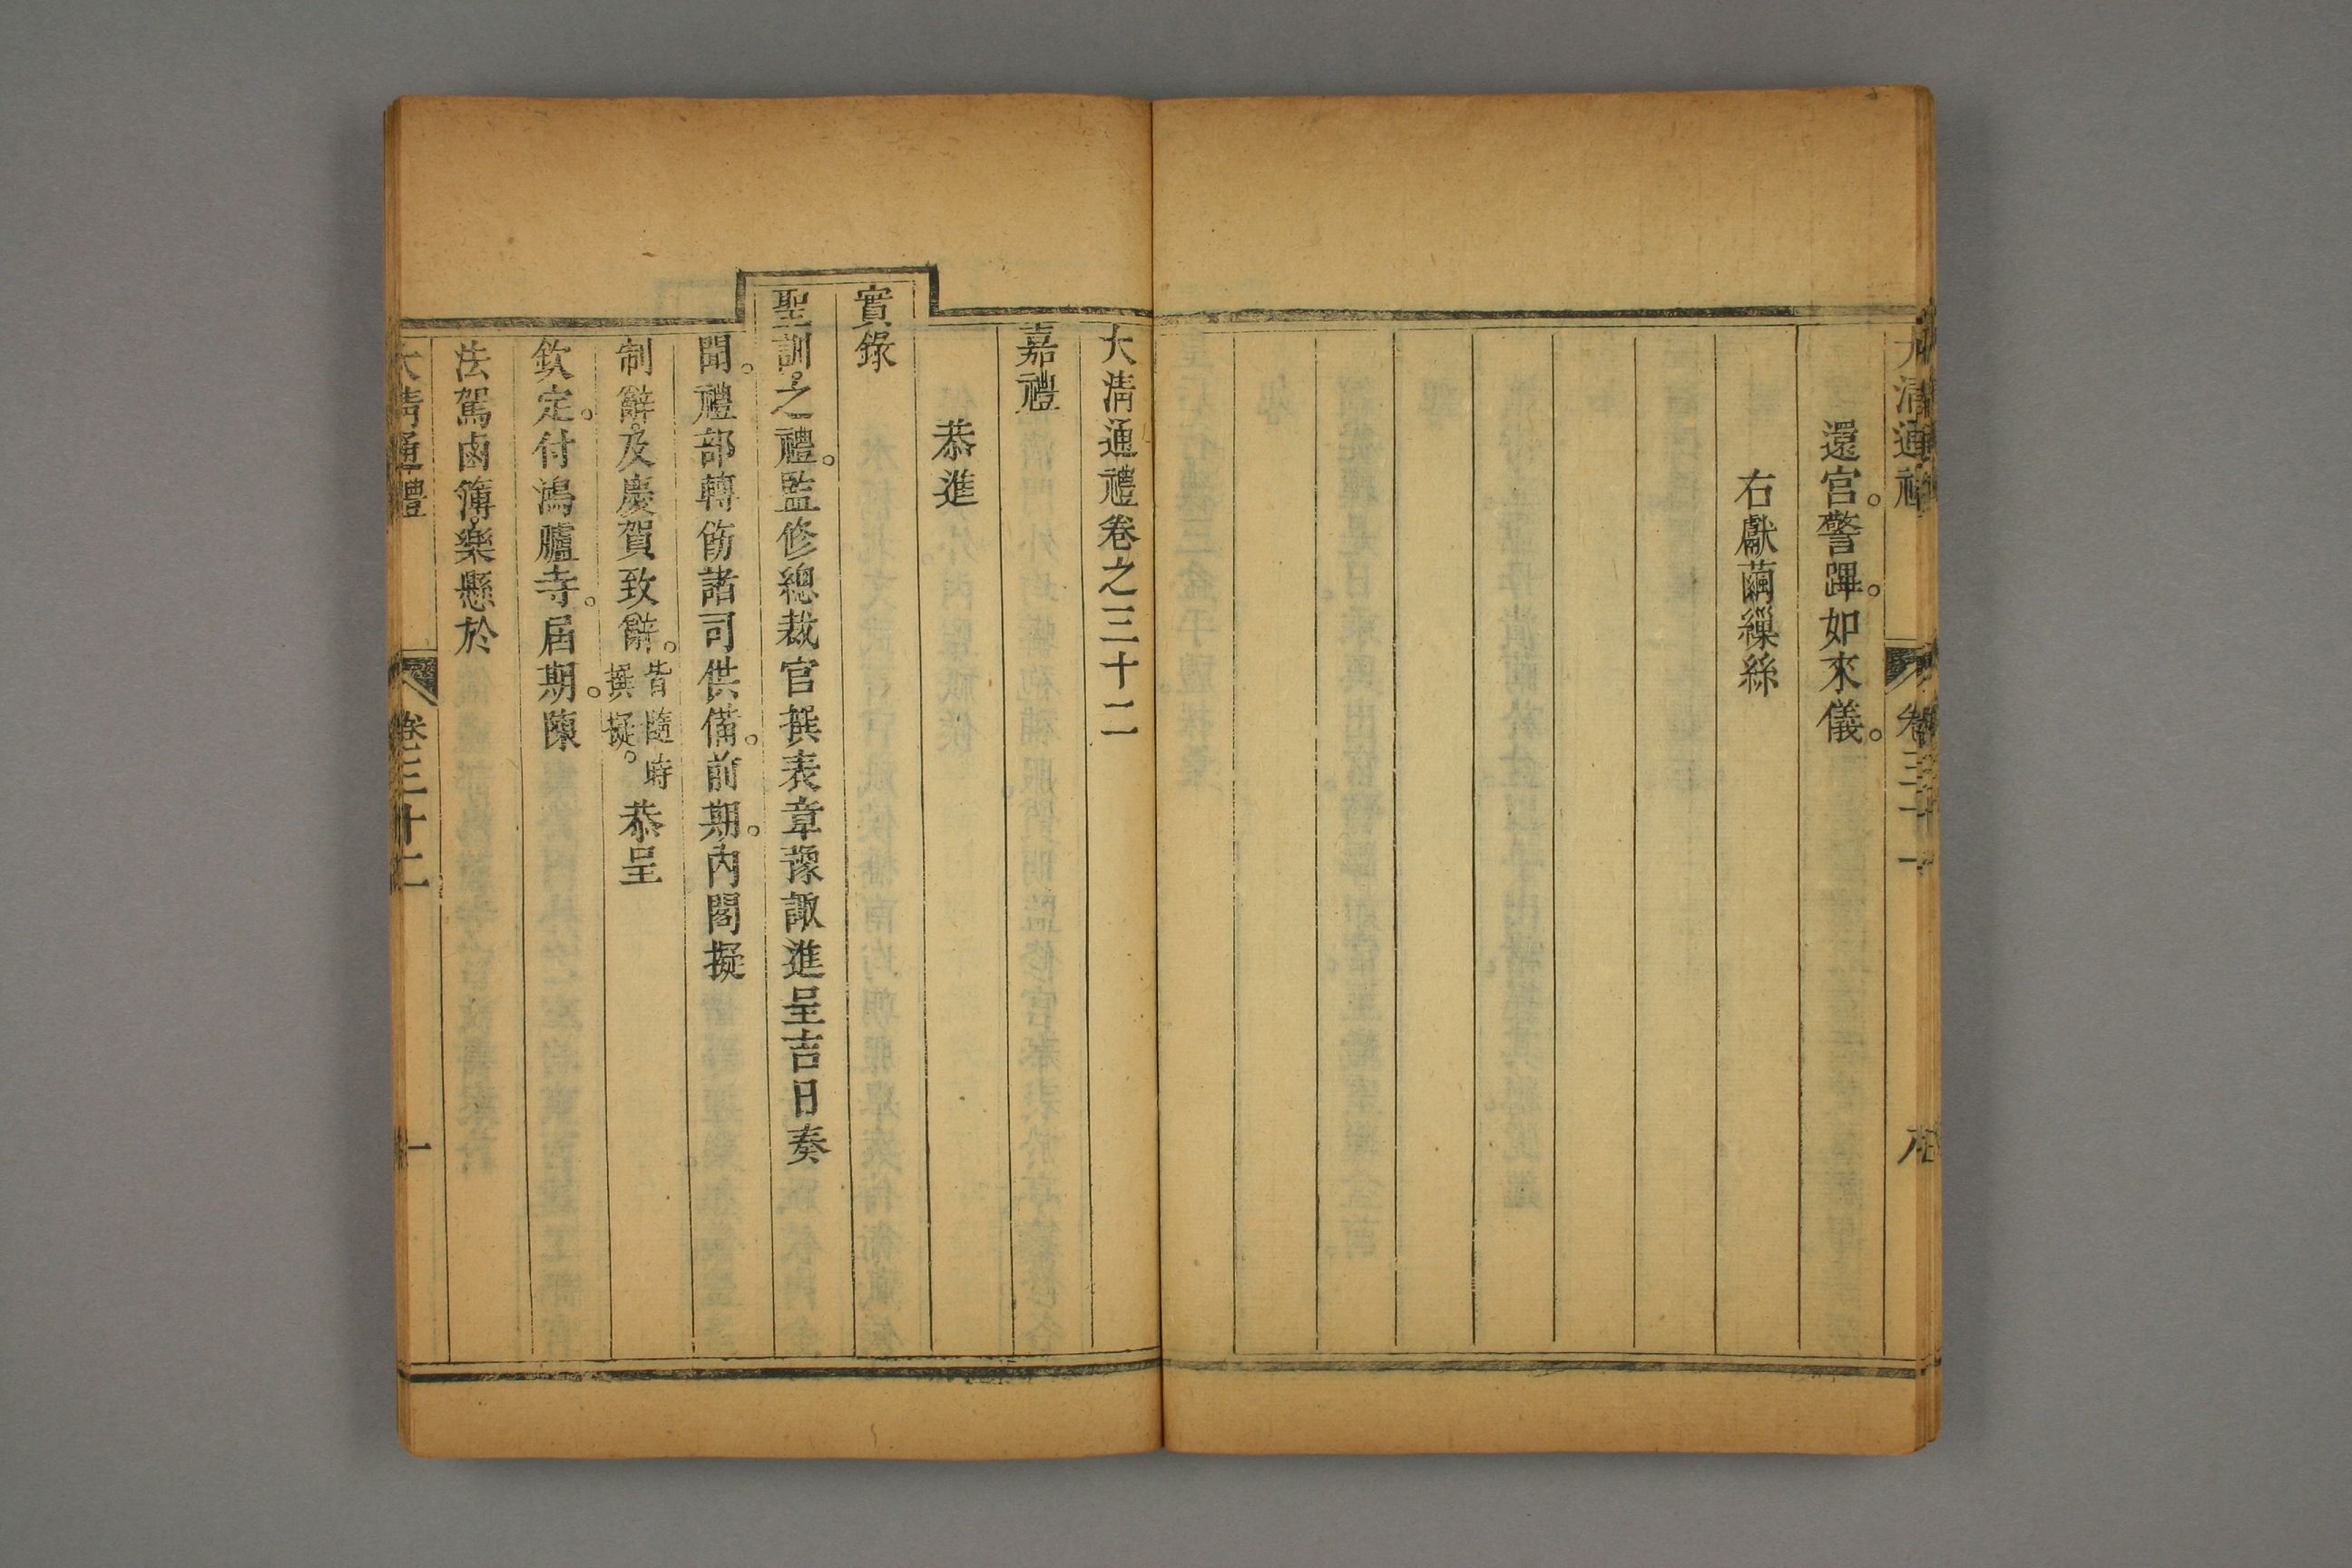 大清通禮 卷三十一
還宮。警蹕。如來儀。
右獻繭繅絲
大清通禮卷之三十二
嘉禮
恭進
實錄
聖訓。之禮。監修總裁官撰表章豫諏進呈吉日奏
聞。禮部轉飭諸司供備。前期。內閣擬
制辭。及慶賀致辭。皆隨時撰擬。恭呈
欽定。付鴻臚寺。屆期。陳
法駕鹵簿。樂懸於
大清通禮 卷三十二 一